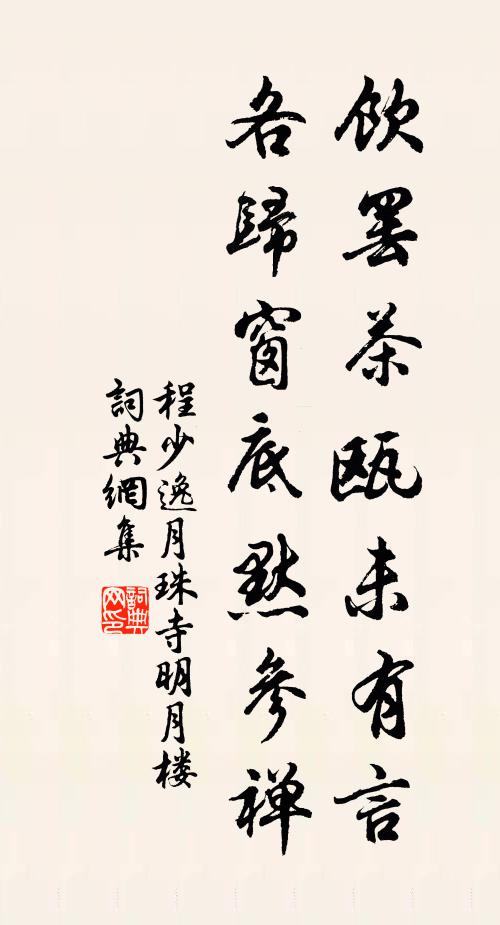 飲罷茶甌未有言
各歸窗底默參禅
程少逸月珠寺明月楼
詞典網集
詞典
网印